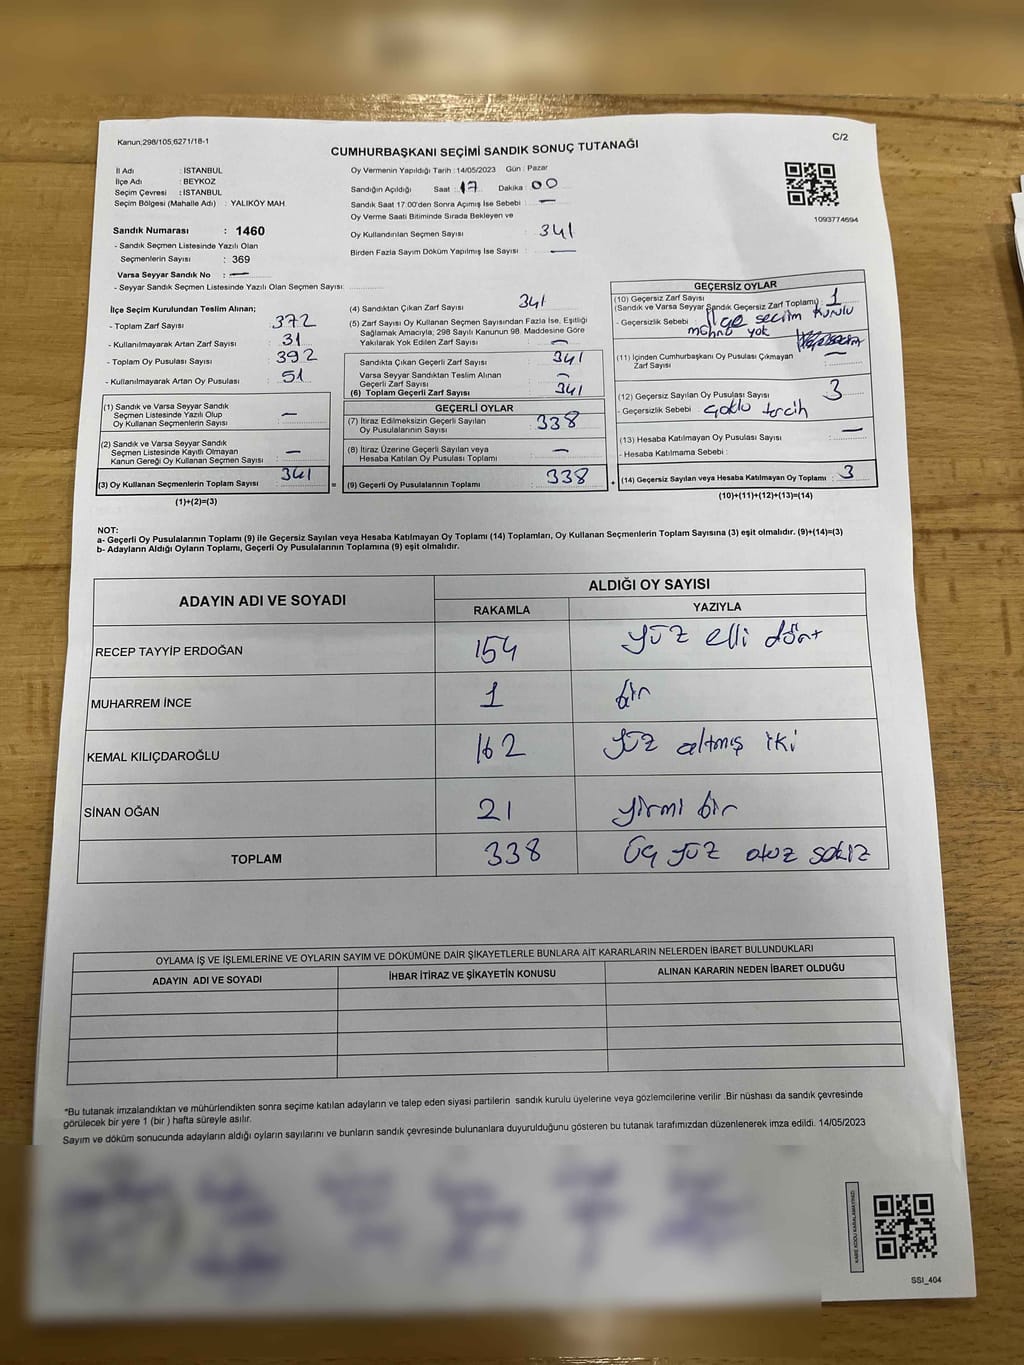 Kanun;298/105,6271/18-1
C/2
CUMHURBAŞKANI SEÇİMİ SANDIK SONUÇ TUTANAĞI
İl Adı : İSTANBUL
İlçe Adı : BEYKOZ
Seçim Çevresi : İSTANBUL
Seçim Bölgesi (Mahalle Adı) : YALIKÖY MAH
Sandık Numarası : 1460
- Sandık Seçmen Listesinde Yazılı Olan
Seçmenlerin Sayısı : 369
Varsa Seyyar Sandık No : —
- Seyyar Sandık Seçmen Listesinde Yazılı Olan Seçmen Sayısı:
Oy Vermenin Yapıldığı Tarih : 14/05/2023 Gün : Pazar
Sandığın Açıldığı Saat : 17 Dakika : 00
Sandık Saat 17.00'den Sonra Açılmış İse Sebebi : —
Oy Verme Saati Bitiminde Sırada Bekleyen ve
Oy Kullandırılan Seçmen Sayısı : 341
Birden Fazla Sayım Döküm Yapılmış İse Sayısı : —
1093774694
İlçe Seçim Kurulundan Teslim Alınan;
- Toplam Zarf Sayısı : 372
- Kullanılmayarak Artan Zarf Sayısı : 31
- Toplam Oy Pusulası Sayısı : 392
- Kullanılmayarak Artan Oy Pusulası : 51
(1) Sandık ve Varsa Seyyar Sandık
Seçmen Listesinde Yazılı Olup
Oy Kullanan Seçmenlerin Sayısı : —
(2) Sandık ve Varsa Seyyar Sandık
Seçmen Listesinde Kayıtlı Olmayan
Kanun Gereği Oy Kullanan Seçmen Sayısı : —
(3) Oy Kullanan Seçmenlerin Toplam Sayısı : 341
(1)+(2)=(3)
(4) Sandıktan Çıkan Zarf Sayısı : 341
(5) Zarf Sayısı Oy Kullanan Seçmen Sayısından Fazla İse, Eşitliği
Sağlamak Amacıyla; 298 Sayılı Kanunun 98. Maddesine Göre
Yakılarak Yok Edilen Zarf Sayısı : —
Sandıkta Çıkan Geçerli Zarf Sayısı : 341
Varsa Seyyar Sandıktan Teslim Alınan
Geçerli Zarf Sayısı : —
(6) Toplam Geçerli Zarf Sayısı : 341
GEÇERLİ OYLAR
(7) İtiraz Edilmeksizin Geçerli Sayılan
Oy Pusulalarının Sayısı : 338
(8) İtiraz Üzerine Geçerli Sayılan veya
Hesaba Katılan Oy Pusulası Toplamı : —
= (9) Geçerli Oy Pusulalarının Toplamı : 338
GEÇERSİZ OYLAR
(10) Geçersiz Zarf Sayısı
(Sandık ve Varsa Seyyar Sandık Geçersiz Zarf Toplamı) : 1
- Geçersizlik Sebebi : İlçe seçim kurulu
mührü yok
(11) İçinden Cumhurbaşkanı Oy Pusulası Çıkmayan
Zarf Sayısı : —
(12) Geçersiz Sayılan Oy Pusulası Sayısı : 3
- Geçersizlik Sebebi : çoklu tercih
(13) Hesaba Katılmayan Oy Pusulası Sayısı : —
- Hesaba Katılmama Sebebi :
+ (14) Geçersiz Sayılan veya Hesaba Katılmayan Oy Toplamı : 3
(10)+(11)+(12)+(13)=(14)
NOT:
a- Geçerli Oy Pusulalarının Toplamı (9) ile Geçersiz Sayılan veya Hesaba Katılmayan Oy Toplamı (14) Toplamları, Oy Kullanan Seçmenlerin Toplam Sayısına (3) eşit olmalıdır. (9)+(14)=(3)
b- Adayların Aldığı Oyların Toplamı, Geçerli Oy Pusulalarının Toplamına (9) eşit olmalıdır.
ADAYIN ADI VE SOYADI
ALDIĞI OY SAYISI
RAKAMLA YAZIYLA
RECEP TAYYİP ERDOĞAN 154 yüz elli dört
MUHARREM İNCE 1 bir
KEMAL KILIÇDAROĞLU 162 yüz altmış iki
SİNAN OĞAN 21 yirmi bir
TOPLAM 338 üç yüz otuz sekiz
OYLAMA İŞ VE İŞLEMLERİNE VE OYLARIN SAYIM VE DÖKÜMÜNE DAİR ŞİKAYETLERLE BUNLARA AİT KARARLARIN NELERDEN İBARET BULUNDUKLARI
ADAYIN ADI VE SOYADI İHBAR İTİRAZ VE ŞİKAYETİN KONUSU ALINAN KARARIN NEDEN İBARET OLDUĞU
*Bu tutanak imzalandıktan ve mühürlendikten sonra seçime katılan adayların ve talep eden siyasi partilerin sandık kurulu üyelerine veya gözlemcilerine verilir .Bir nüshası da sandık çevresinde
görülecek bir yere 1 (bir ) hafta süreyle asılır.
Sayım ve döküm sonucunda adayların aldığı oyların sayılarını ve bunların sandık çevresinde bulunanlara duyurulduğunu gösteren bu tutanak tarafımızdan düzenlenerek imza edildi. 14/05/2023
KARE KODU KARALAMAYINIZ!
SSI_404